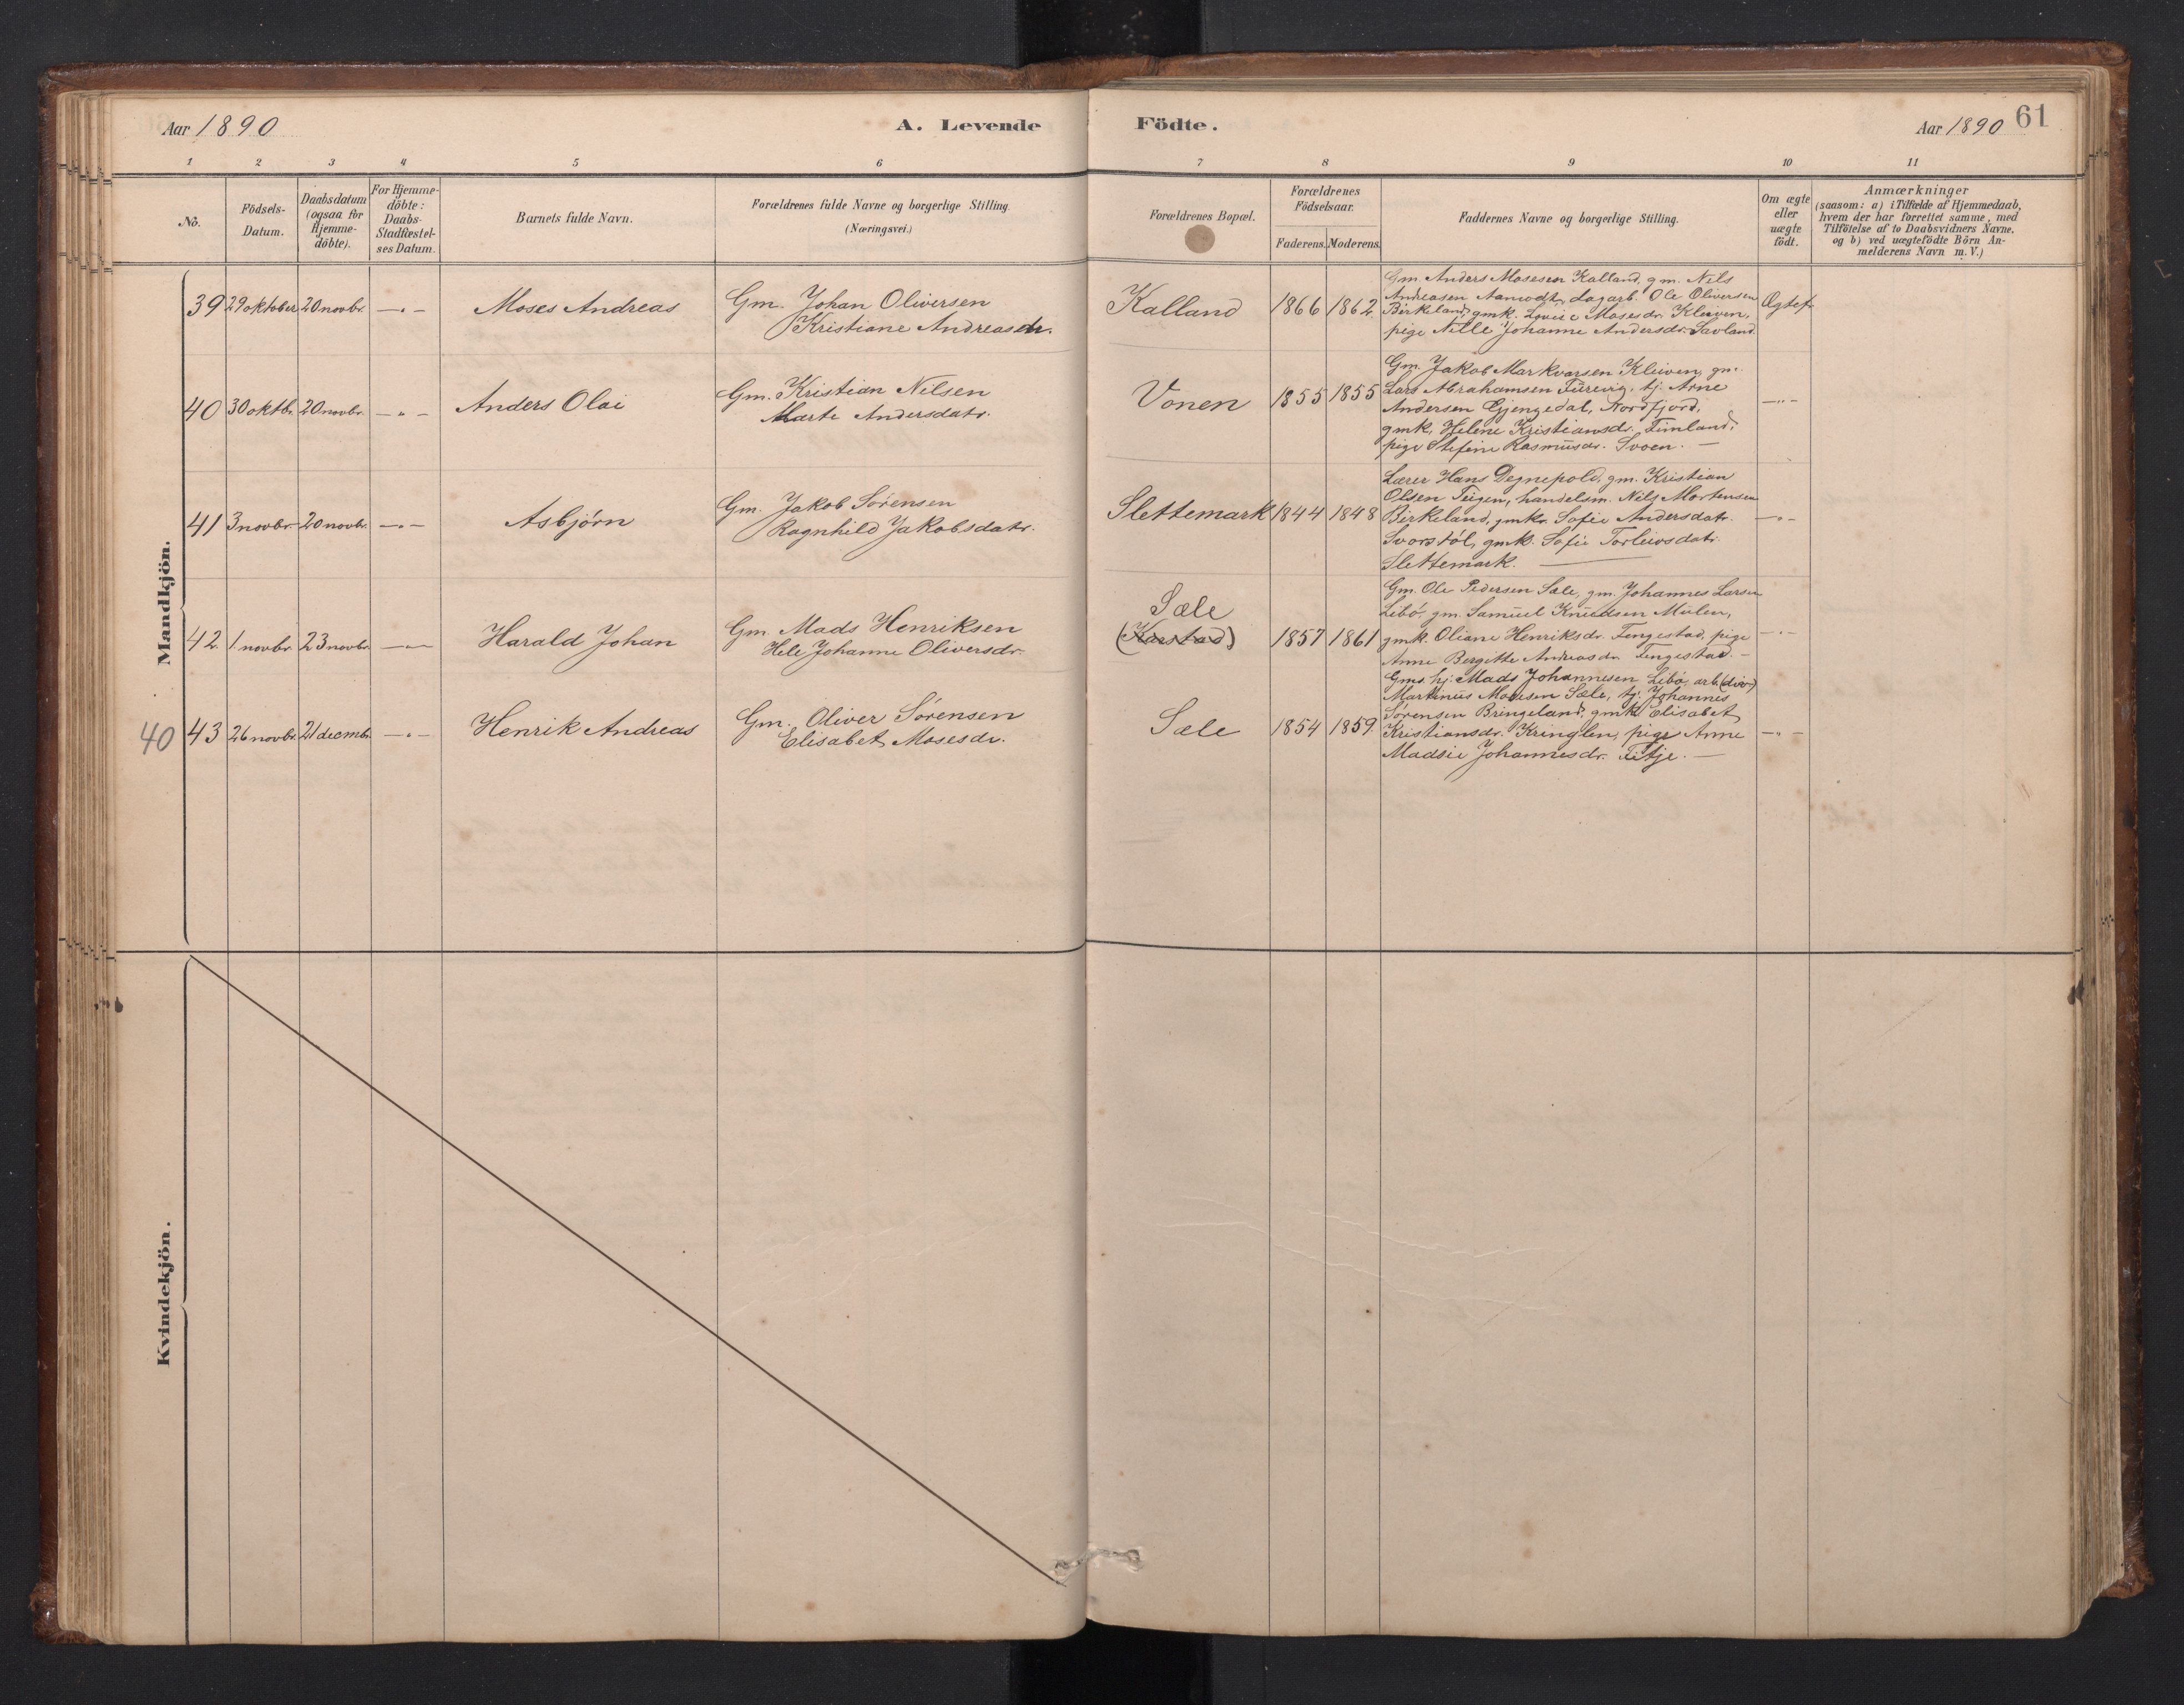 Aar 1890
A. Levende
Födte.
Aar 1890
61
1 2 3 4 5 6 7 8 9 10 11
No.
Födsels-
Datum.
Daabsdatum
(ogsaa for
Hjemme-
döbte).
For Hjemme-
döbte:
Daabs-
Stadfæstel-
ses Datum.
Barnets fulde Navn.
Forældrenes fulde Navne og borgerlige Stilling.
(Næringsvei.)
Forældrenes Bopæl.
Forældrenes
Födselsaar.
Faderens. Moderens.
Faddernes Navne og borgerlige Stilling.
Om ægte
eller
uægte
födt.
Anmærkninger
(saasom: a) i Tilfælde af Hjemmedaab,
hvem der har forrettet samme, med
Tilföielse af to Daabsvidners Navne.
og b) ved uægtefödte Börn An-
melderens Navn m. V.)
Mandkjön.
39 29 oktober 20 novbr. —"— Moses Andreas
Gm. Johan Oliversen
Kristiane Andreasdr.
Kalland 1866 1862.
Gm. Anders Mosesen Kalland, gm. Nils
Andreasen Aamodt, dagarb. Ole Oliversen
Birkeland, gmk. Lovise Mosesdr. Kleiven,
pige Nille Johanne Andersdr. Savland.
Ægtef.
40 30 oktbr. 20 novbr. —"— Anders Olai
Gm. Kristian Nilsen
Marte Andersdatr.
Vonen 1855 1855
Gm. Jakob Markvorsen Kleiven, gm.
Lars Abrahamsen Turevig, tj. Arne
Andersen Gjengedal, Nordfjord,
gmk. Helene Kristiansdr. Timland,
pige Stefine Rasmusdr. Svoen. —
—"—
41 3 novbr. 20 novbr. —"— Asbjørn
Gm. Jakob Sørensen
Ragnhild Jakobsdatr.
Slettemark 1844 1848
Lærer Hans Degnepold, gm. Kristian
Olsen Teigen, handelsm. Nils Mortensen
Birkeland, gmkr. Sofie Andersdatr.
Svorstøl, gmk. Sofie Torleivsdatr.
Slettemark. —
—"—
42. 1 novbr. 23 novbr. —"— Harald Johan
Gm. Mads Henriksen
Hele Johanne Oliversdr.
Sæle
(Karstad) 1857 1861
Gm. Ole Pedersen Sæle, gm. Johannes Larsen
Libø, gm. Samuel Knudsen Mulen,
gmk. Oliane Henriksdr. Tengestad, pige
Anne Bergitte Andreasdr. Tengestad. —
—"—
40
43 26 novbr. 21 decmbr. —"— Henrik Andreas
Gm. Oliver Sørensen
Elisabet Mosesdr.
Sæle 1854 1859.
Gms. hj. Mads Johannesen Libø, arb.
Martinus Mosesen Sæle, tj. Johannes
Sørensen Bringeland, gmk. Elisabet
Kristiansdr. Kringlen, pige Anne
Madsie Johannesdr. Fitje. —
—"—
Kvindekjön.